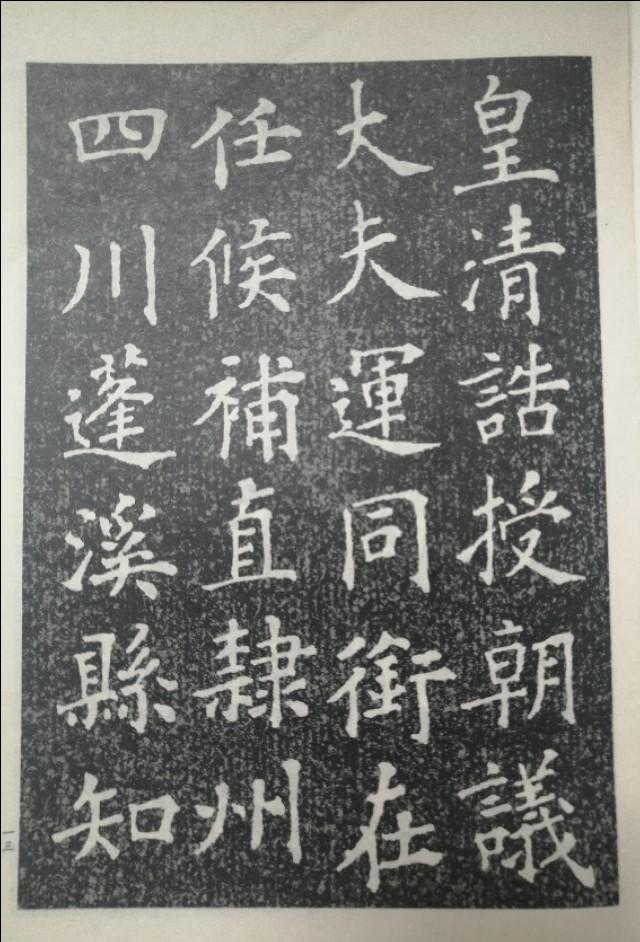 皇清誥授朝議
大夫運同銜在
任候補直隸州
四川蓬溪縣知
一三